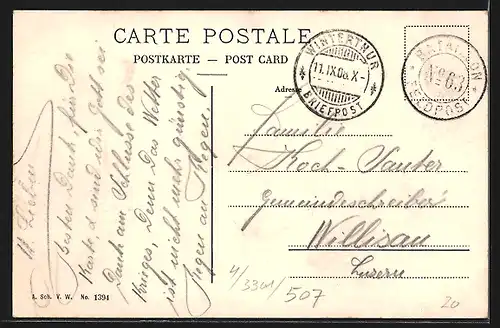 CARTE POSTALE
POSTKARTE — POST CARD
WINTERTHUR
11.IX.08.X-
BRIEFPOST
BATAILLON
No 63
FELDPOST
Adresse
M. Lieben
Besten Dank für Die
Karte & sind wir Gott sei
Dank am Schlusse des
Krieges, Denn Das Wetter
ist nicht mehr günstig,
Regen an Regen.
Familie
Koch-Sauter
Gemeindeschreiber
Willisau
Luzern
4/3301/507
20
A. Sch. V. W. No. 1394